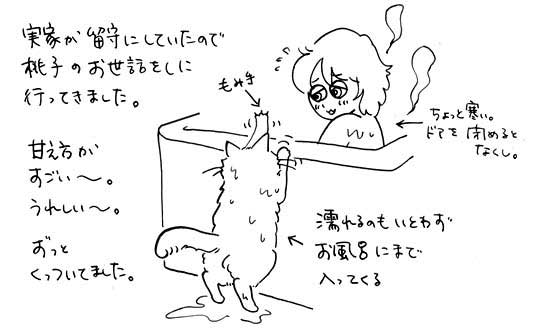 実家が留守にしていたので
桃子のお世話をしに
行ってきました。
甘え方が
すごい〜。
うれしい〜。
ずっと
くっついてました。
もみ手
ちょっと寒い。
ドアを閉めると
なくし。
濡れるのもいとわず
お風呂にまで
入ってくる